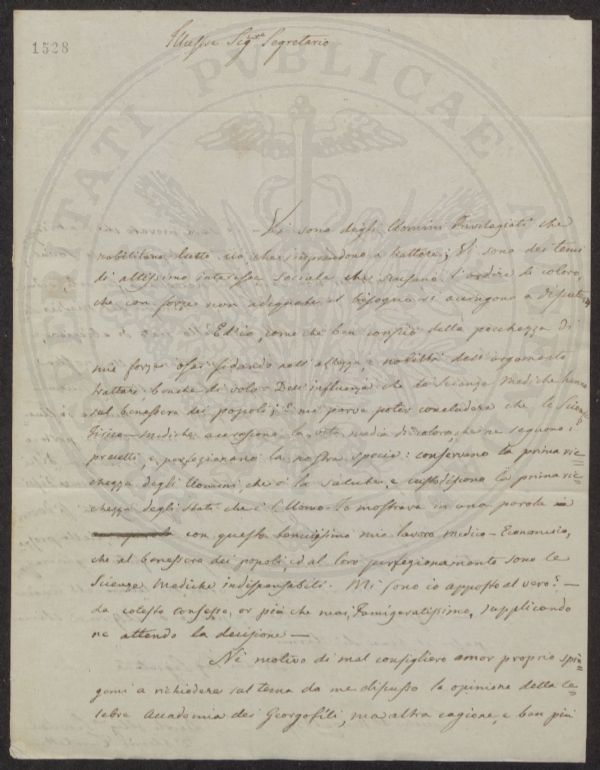 1528
Illustre Sigre Segretario
Vi sono degli Uomini Privilegiati che
nobilitano tutto ciò che imprendono a trattare; Vi sono dei temi
di altissimo interesse sociale che scusano l'ardire di coloro,
che con forze non adeguate al bisogno si accingono a disputarne
Ed io, come che ben conscio della pochezza di
mie forze osai fidando nell'altezza, e nobiltà dell'argomento
trattare benche di volo - Dell'influenza che le Scienze Mediche hanno
sul benessere dei popoli; E mi parve poter concludere che le Scienze
Fisico-Mediche accrescono la vita media di coloro, che ne seguono i
precetti, e perfezionano la nostra specie: conservano la prima ric=
chezza degli Uomini che è la salute, e custodiscono la prima ric=
chezza degli Stati che è l'Uomo. Io mostrava in una parola
con questo tenuissimo mio lavoro Medico-Economico,
che al benessere dei popoli, ed al loro perfezionamento sono le
Scienze Mediche indispensabili. Mi sono io apposto al vero? -
da cotesto consesso, or più che mai, Famigeratissimo, supplicando
ne attendo la decisione -
Nè motivo di mal consigliero amor proprio spin=
gemi a richiedere sul tema da me discusso la opinione della ce=
lebre Accademia dei Georgofili, ma altra cagione, e ben più
ACCADEMIA
PUBLICAE